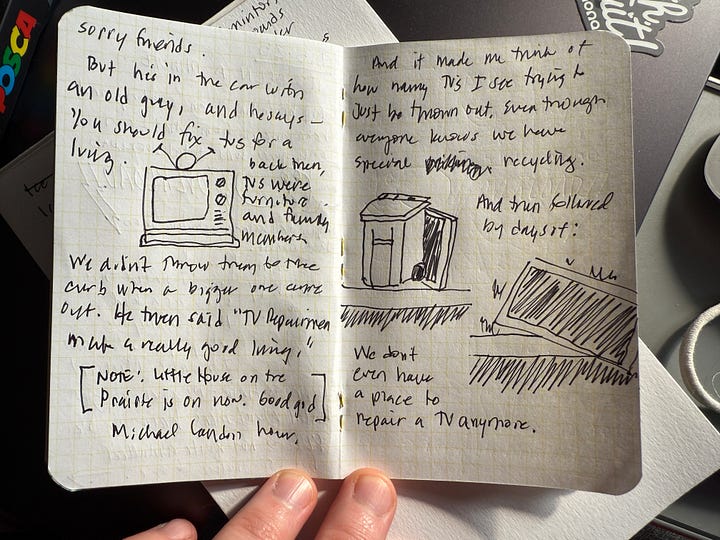 sorry friends.
But he's in the car with
an old guy, and he says –
"You should fix tvs for a
living.
back then,
TVs were
furniture
and family
members
We didn't throw them to the
curb when a bigger one came
out. He then said "TV Repairmen
make a really good living."
[NOTE: Little House on the
Prairie is on now. Good god]
Michael Landon hour.
And it made me think of
how many TVs I see trying to
Just be thrown out. Even though
everyone knows we have
special recycling.
And then followed
by days of:
We don't
even have
a place to
repair a TV anymore.
POSCA